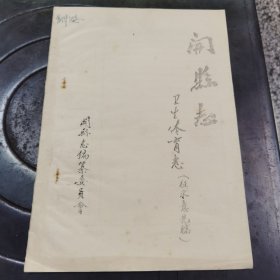 開縣志
卫生体育志（征求意见稿）
開縣志编纂委员会